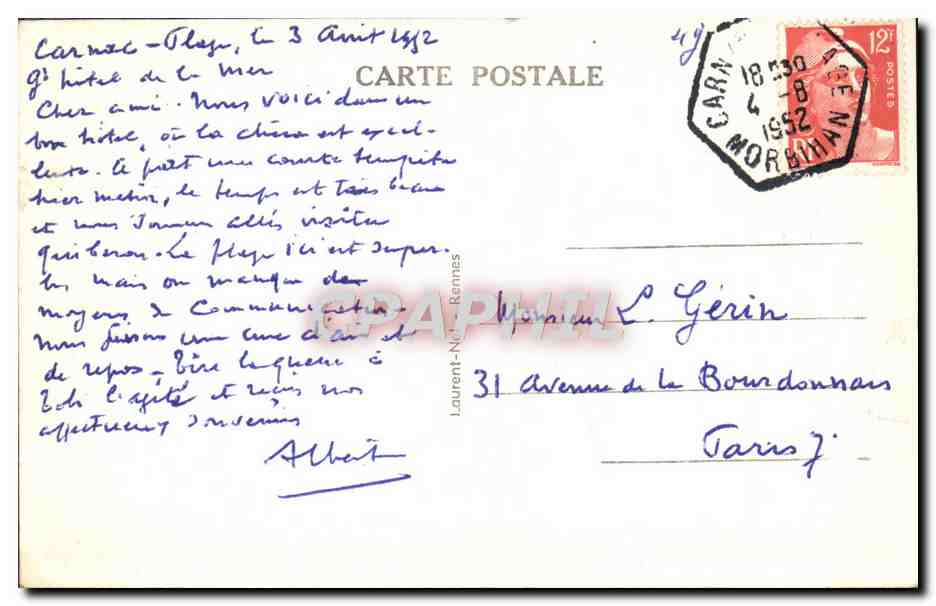 Carnac-Plage, le 3 Août 1952
Gd hôtel de la Mer
CARTE POSTALE
49
CARN AGE
18H30
4 -8
1952
MORBIHAN
12F
POSTES
Cher ami. Nous voici dans un
bon hôtel, où la chère est excel-
lente. Il fait une courte tempête
hier matin, le temps est très beau
et nous sommes allés visiter
Quiberon. La plage ici est super-
be mais on manque de
moyens de communication.
Nous faisons une cure d'air et
de repos. la queue à
Bob l'agité et reçois nos
affectueux souvenirs
Albert
Laurent-Nel - Rennes
CPAPHIL
Monsieur L. Gérin
31 Avenue de la Bourdonnais
Paris 7